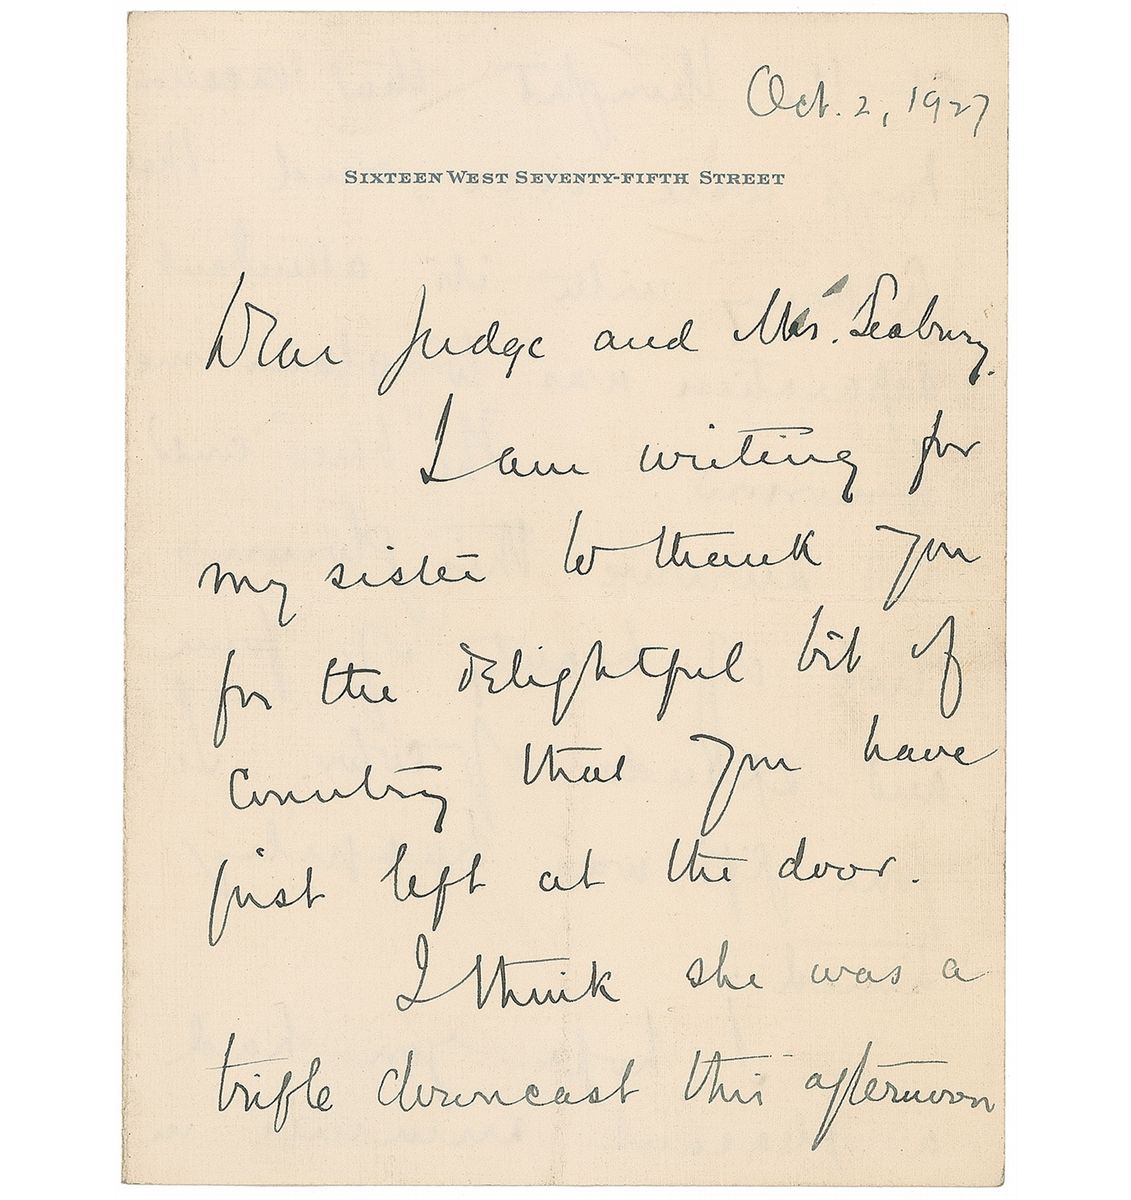 Oct. 2, 1927
SIXTEEN WEST SEVENTY-FIFTH STREET
Dear Judge and Mrs. Seabury.
I am writing for
my sister to thank you
for the delightful bit of
country that you have
just left at the door.
I think she was a
trifle downcast this afternoon